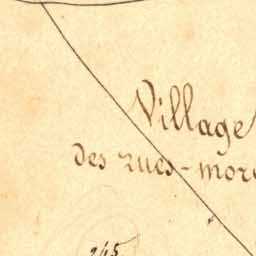 Village
des rues-mor
245